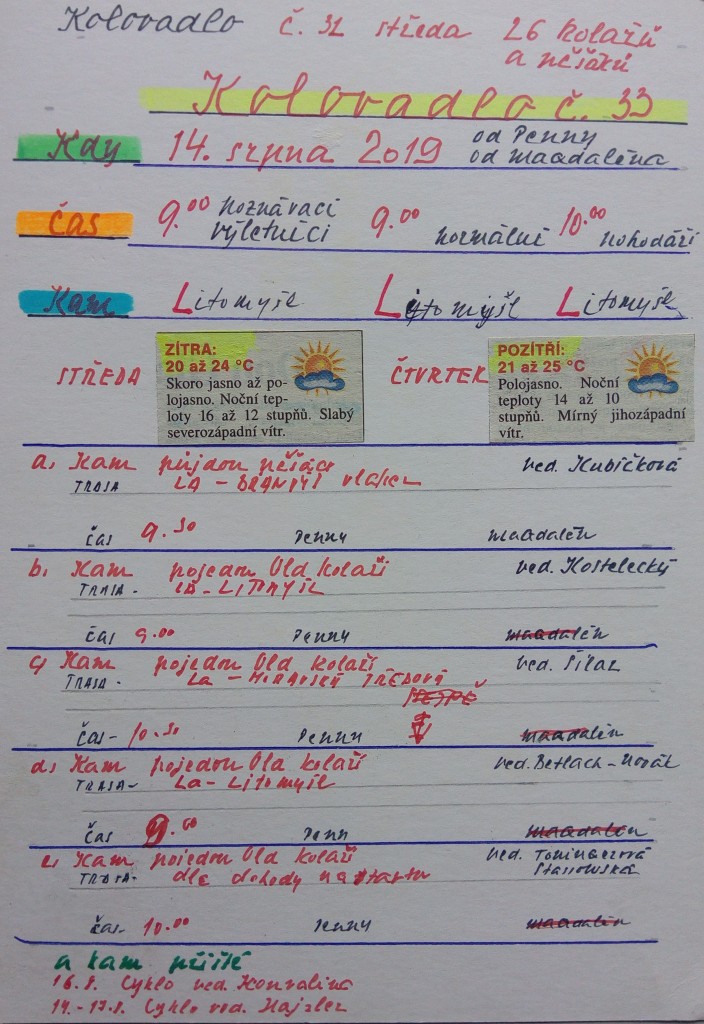 Kolovadlo č. 32 středa 26 kolařů
a pěšáků
Kolovadlo č. 33
Kdy 14. srpna 2019 od Penny
od maadaléna
Čas 9.00 poznávací 9.00 normální 10.00 pohodáři
výletníci
Kam Litomyšl Litomyšl Litomyšl
STŘEDA
ZÍTRA:
20 až 24 °C
Skoro jasno až po-
lojasno. Noční tep-
loty 16 až 12 stupňů. Slabý
severozápadní vítr.
ČTVRTEK
POZÍTŘÍ:
21 až 25 °C
Polojasno. Noční
teploty 14 až 10
stupňů. Mírný jihozápadní
vítr.
a, Kam půjdou pěšáci ved. Kubíčková
TRASA LA - BRANDÝS vlakem
čas 9.30 Penny maadalén
b, Kam pojedou Old kolaři ved. Kostelecký
TRASA - LA - LITOMYŠL
čas 9.00 Penny maadalén
c, Kam pojedou Old kolaři ved.
TRASA - LA - MORAVSKÁ TŘEBOVÁ
čas - 10.30 Penny maadalén
d, Kam pojedou Old kolaři ved. Betlach - Novák
TRASA - LA - Litomyšl
čas 9.00 Penn maadalén
e, Kam pojedou Old kolaři ved.
TRASA - dle dohody na startu
čas - 10.00 Penny maadalén
a kam příště
16.8. Cyklo ved. Konvalina
14.-17.8. Cyklo ved. Hajzler